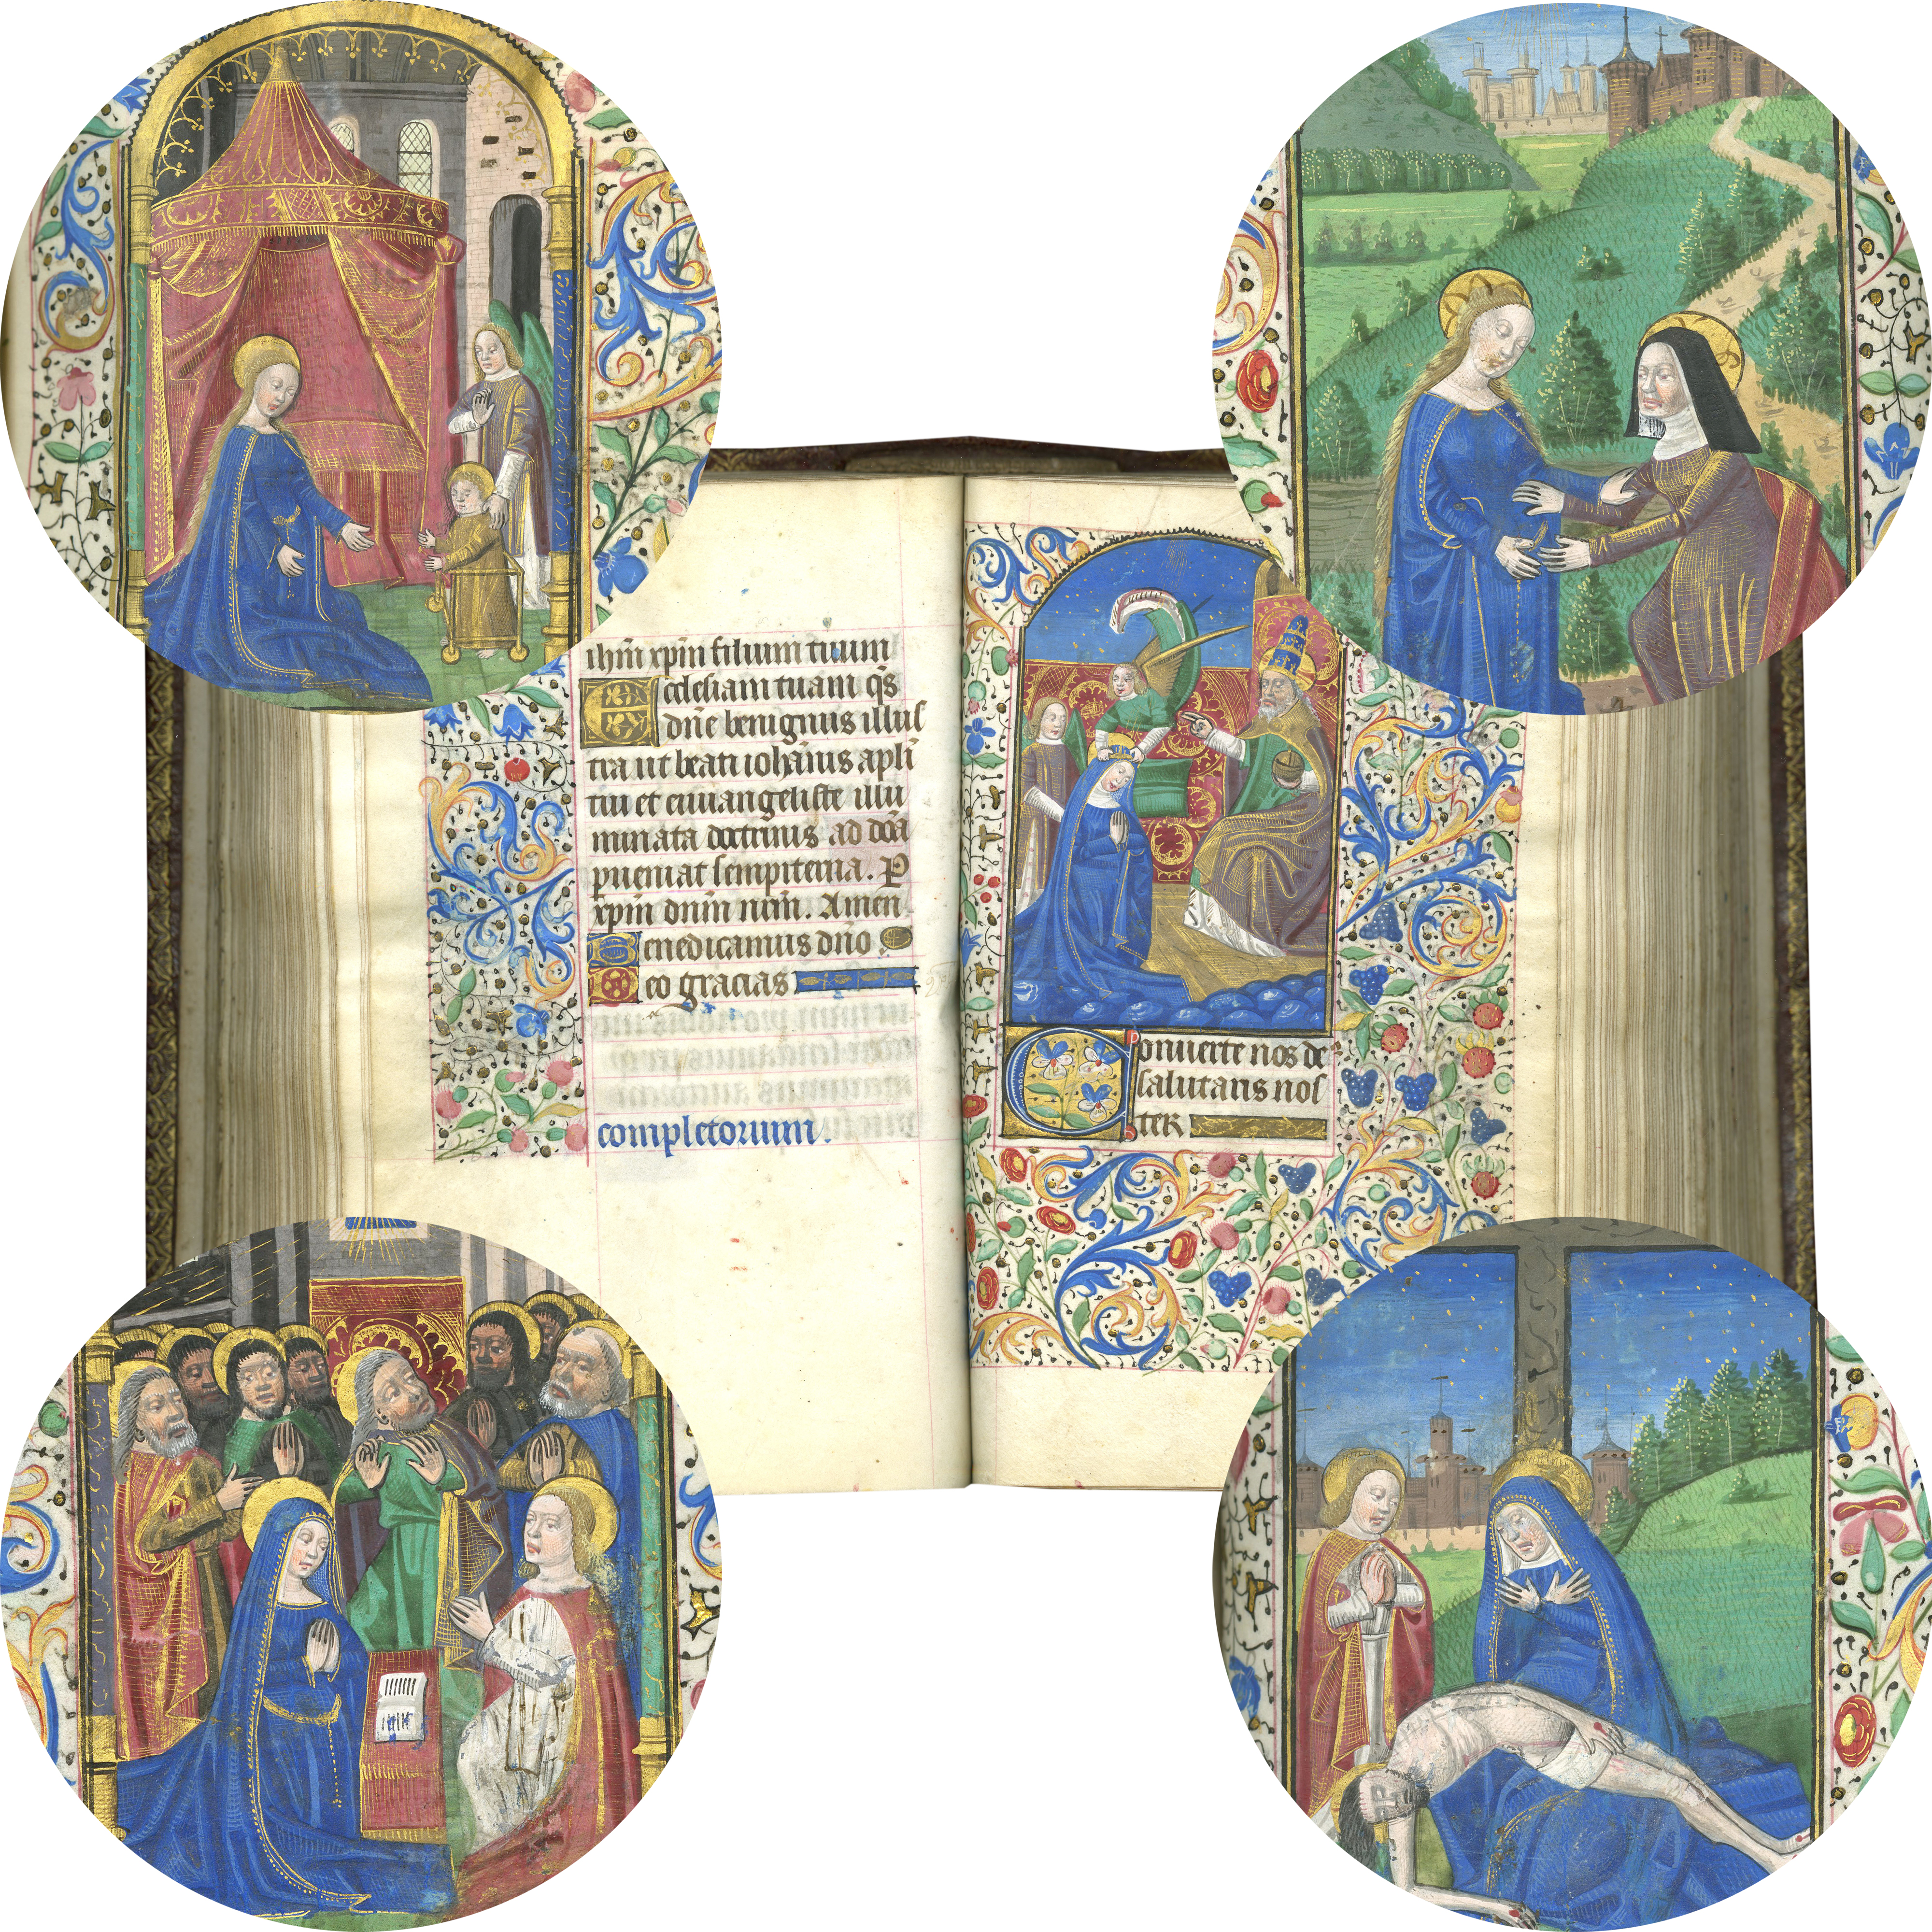 ihm̄ xp̄m filium tuum
Ecclesiam tuam q̄s
dn̄e benignus illus
tra ut beati ioh̄anis apl̄i
tui et euuangeliste illu
minata doctrinis ad dōa
ꝑueniat sempiterna. P
xp̄m dn̄m nr̄m. Amen
Benedicamus dn̄o
Deo gracias
completorium.
Conuerte nos de
salutaris nos
ter